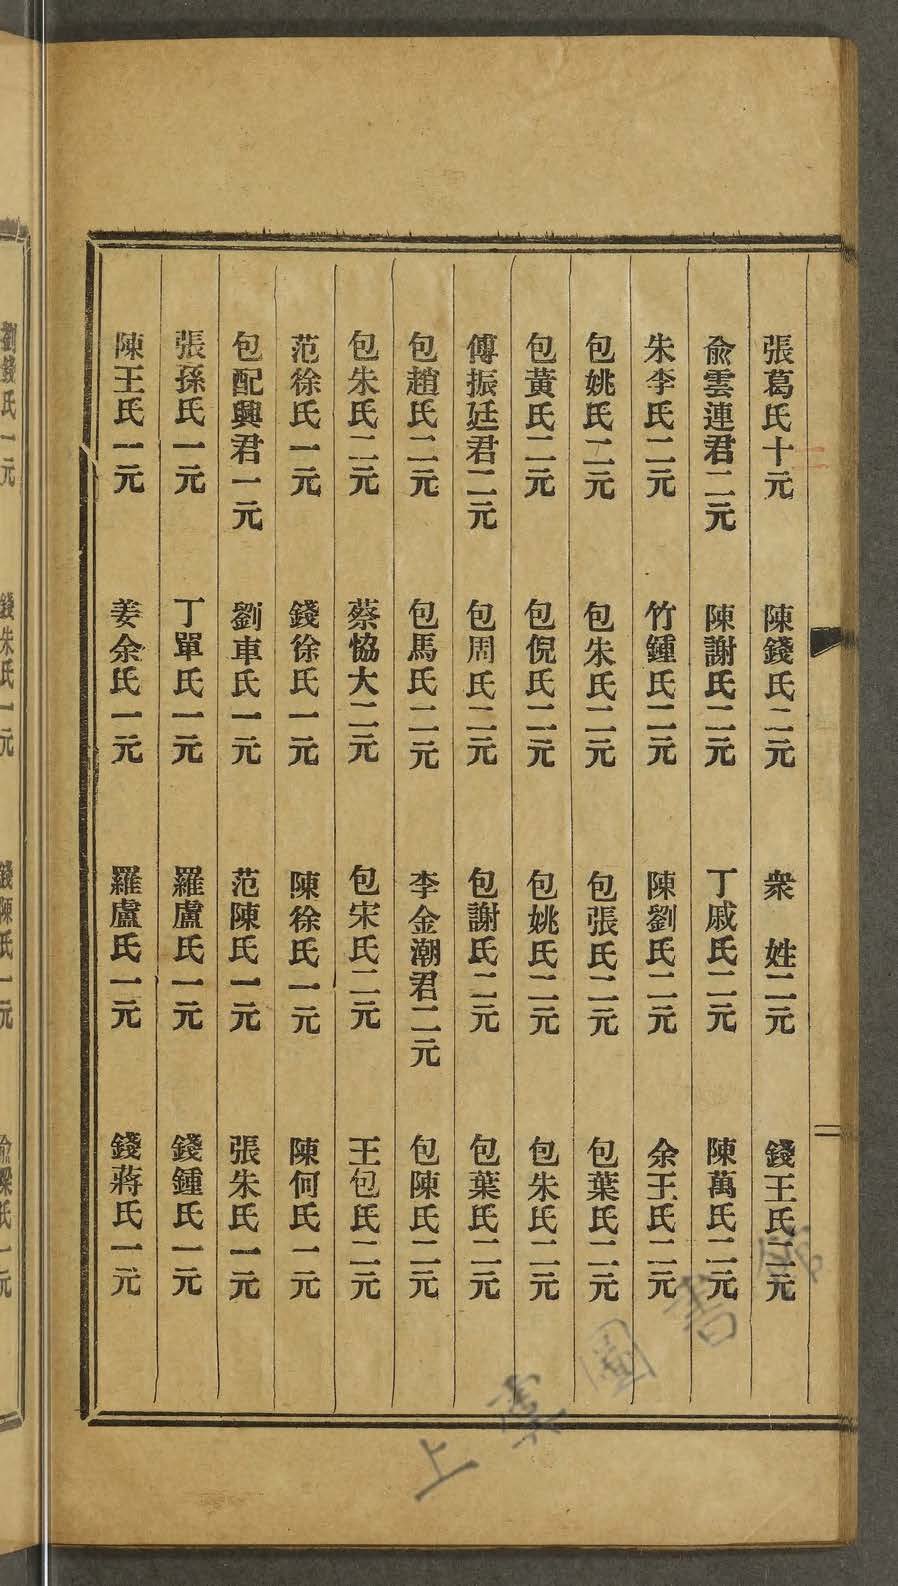 張葛氏十元　陳錢氏二元　衆　姓二元　錢王氏二元
俞雲連君二元　陳謝氏二元　丁戚氏二元　陳萬氏二元
朱李氏二元　竹鍾氏二元　陳劉氏二元　余王氏二元
包姚氏二元　包朱氏二元　包張氏二元　包葉氏二元
包黃氏二元　包倪氏二元　包姚氏二元　包朱氏二元
傅振廷君二元　包周氏二元　包謝氏二元　包葉氏二元
包趙氏二元　包馬氏二元　李金潮君二元　包陳氏二元
包朱氏二元　蔡恊大二元　包宋氏二元　王包氏二元
范徐氏一元　錢徐氏一元　陳徐氏一元　陳何氏一元
包配興君一元　劉車氏一元　范陳氏一元　張朱氏一元
張孫氏一元　丁單氏一元　羅盧氏一元　錢鍾氏一元
陳王氏一元　姜余氏一元　羅盧氏一元　錢蔣氏一元
劉錢氏一元　錢朱氏一元　錢陳氏一元　俞梁氏一元
上虞圖書館